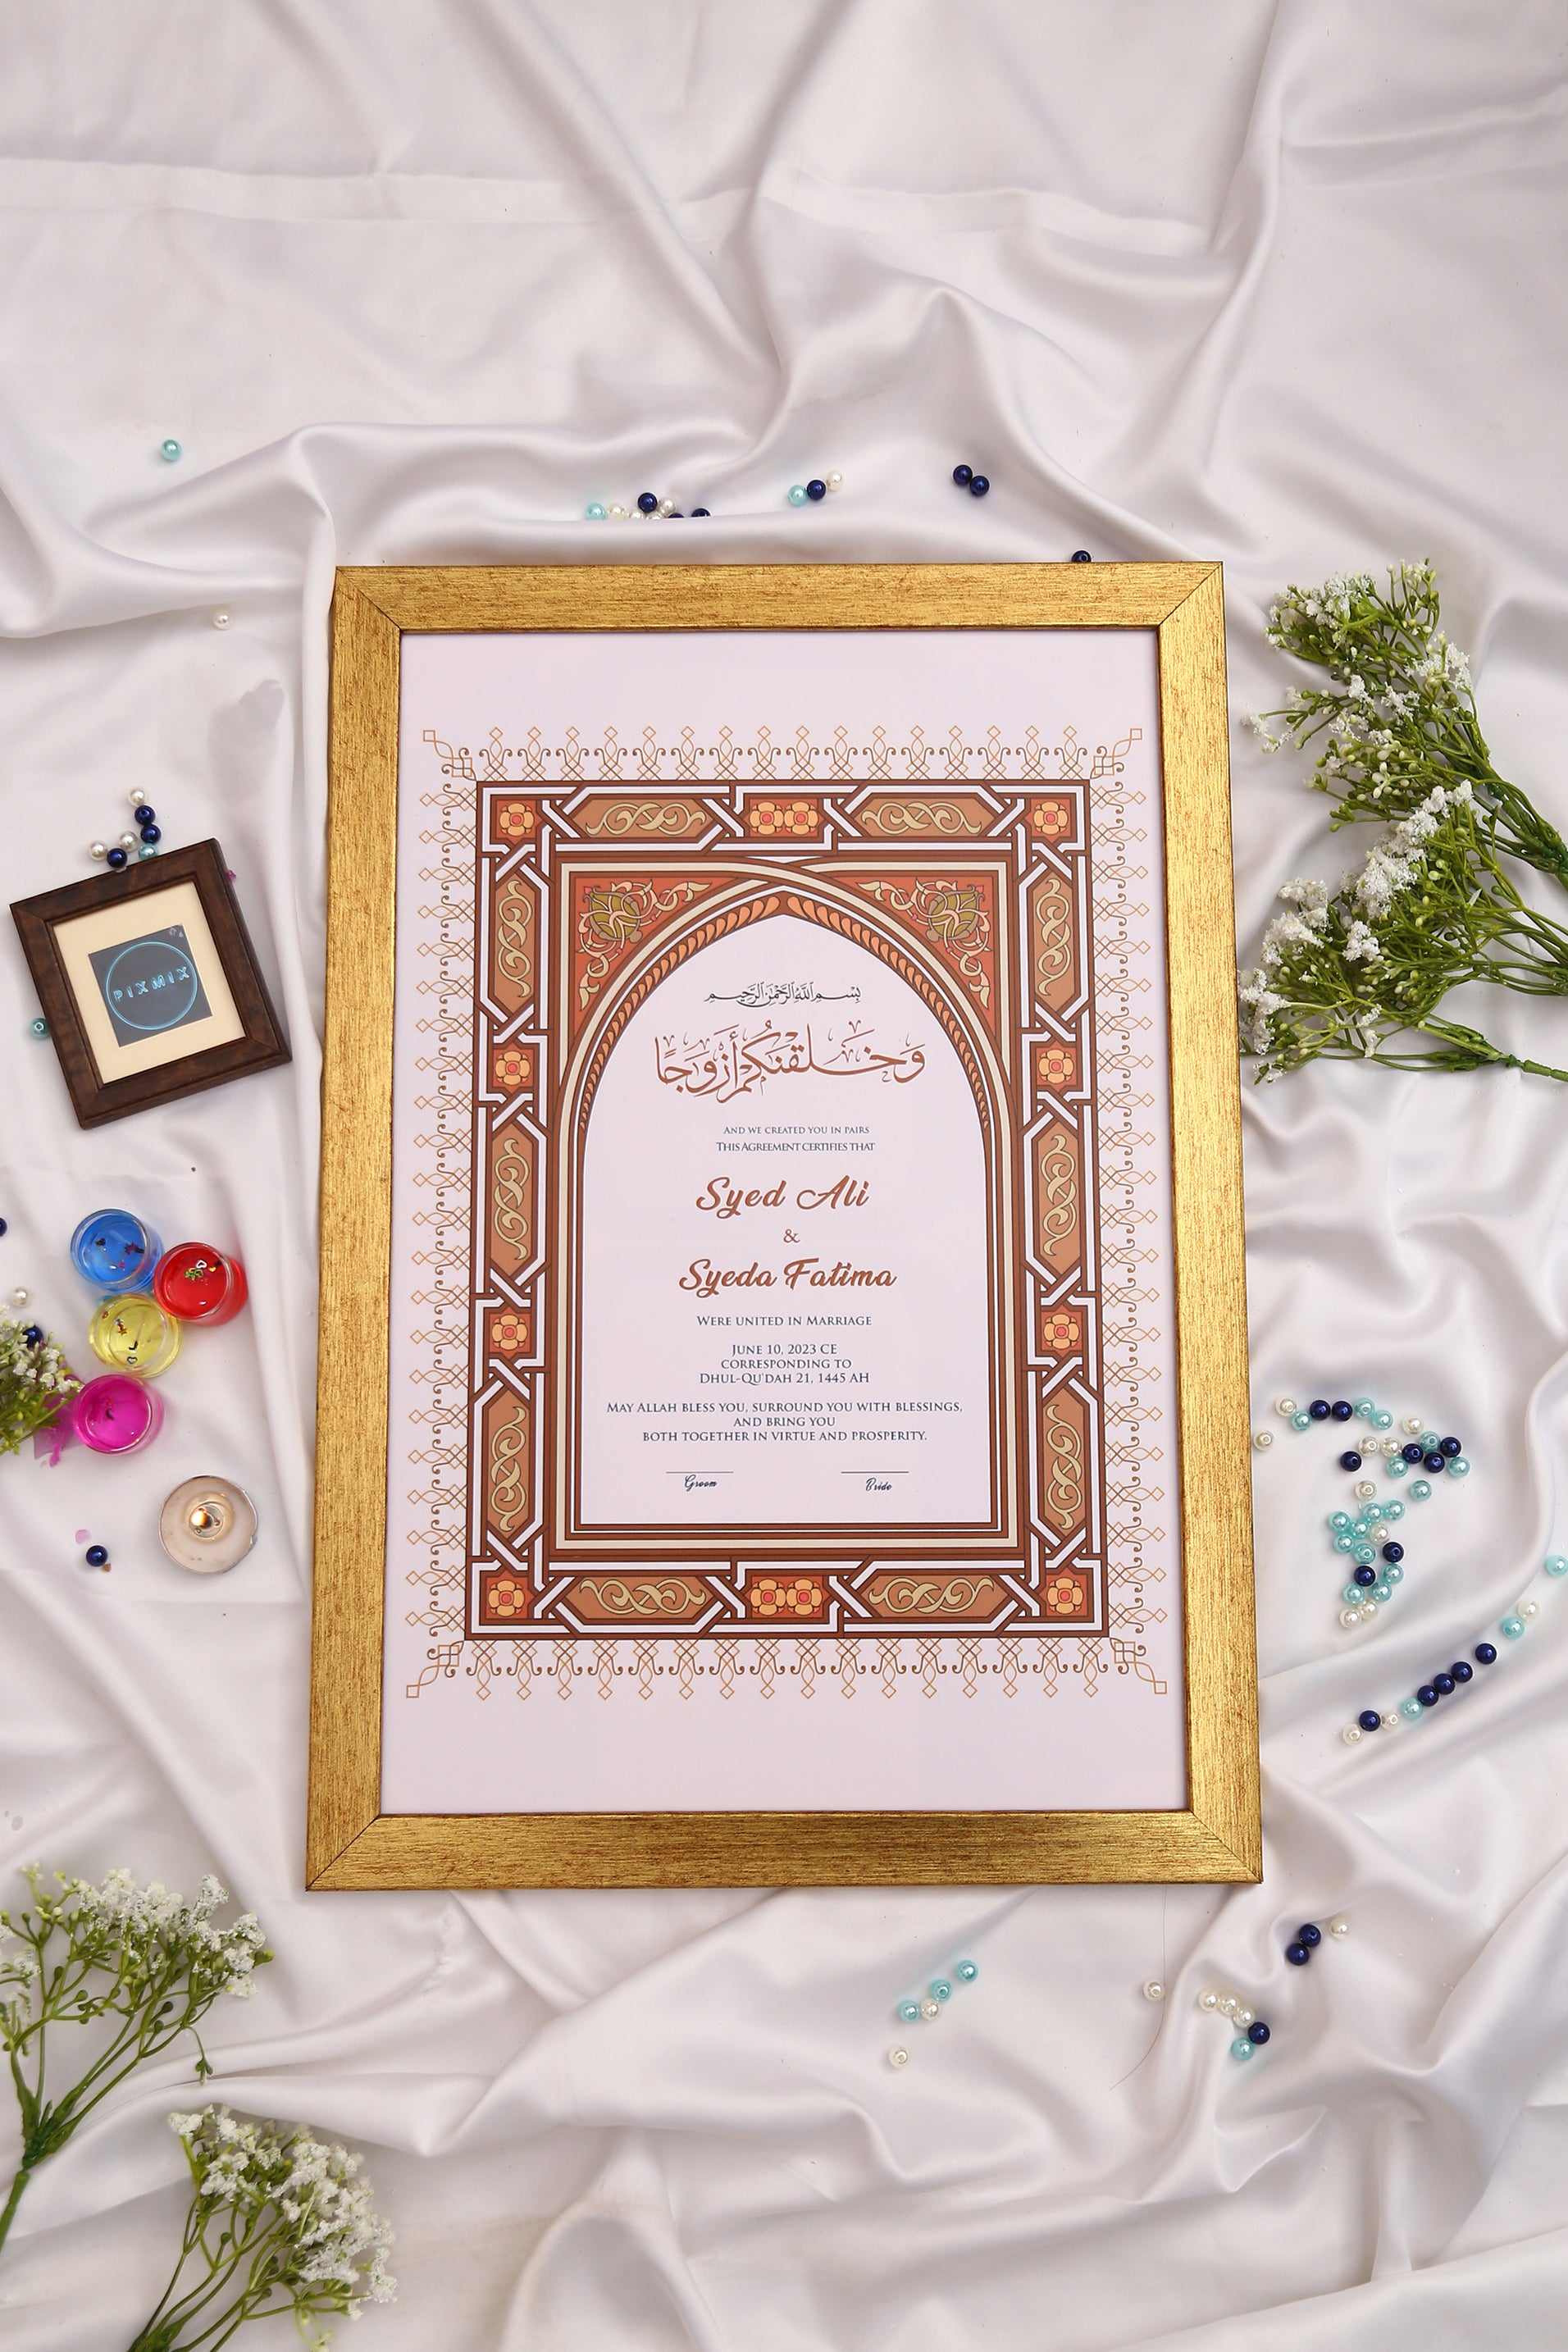 PIXMIX
بِسْمِ اللَّهِ الرَّحْمَنِ الرَّحِيمِ
وَخَلَقْنَكُمْ أَزْوَجًا
AND WE CREATED YOU IN PAIRS
THIS AGREEMENT CERTIFIES THAT
Syed Ali
&
Syeda Fatima
WERE UNITED IN MARRIAGE
JUNE 10, 2023 CE
CORRESPONDING TO
DHUL-QU'DAH 21, 1445 AH
MAY ALLAH BLESS YOU, SURROUND YOU WITH BLESSINGS,
AND BRING YOU
BOTH TOGETHER IN VIRTUE AND PROSPERITY.
Groom Bride